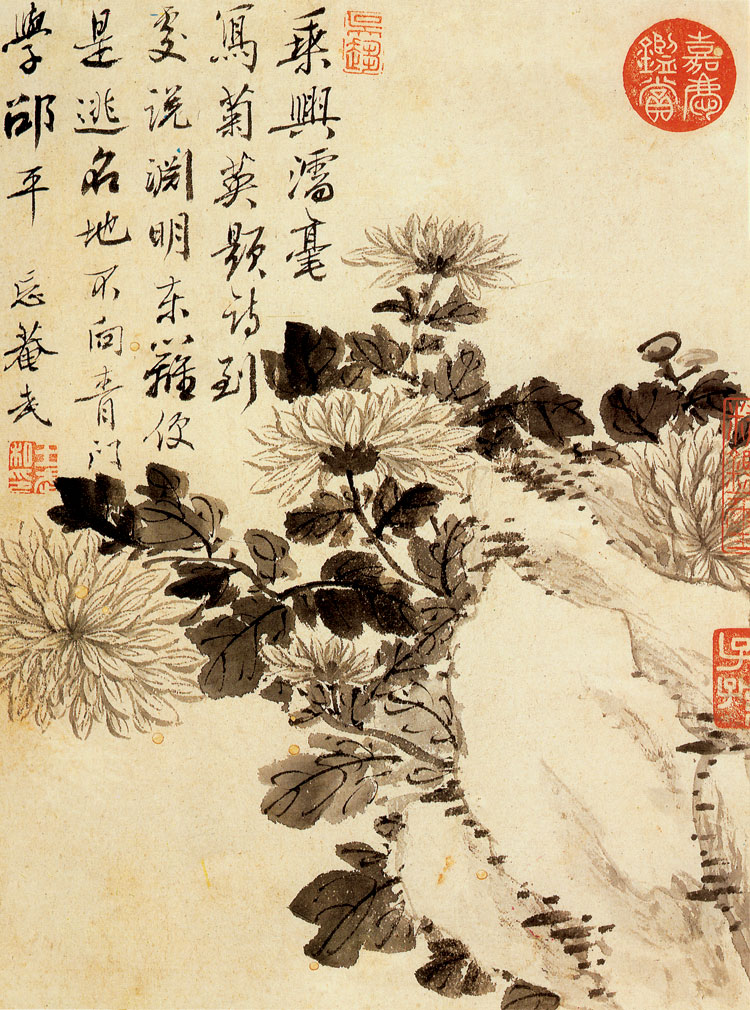 嘉慶
鑑賞
乘興濡毫
寫菊英題詩到
處說淵明東籬便
是逃名地不向青門
學邵平 忘菴武